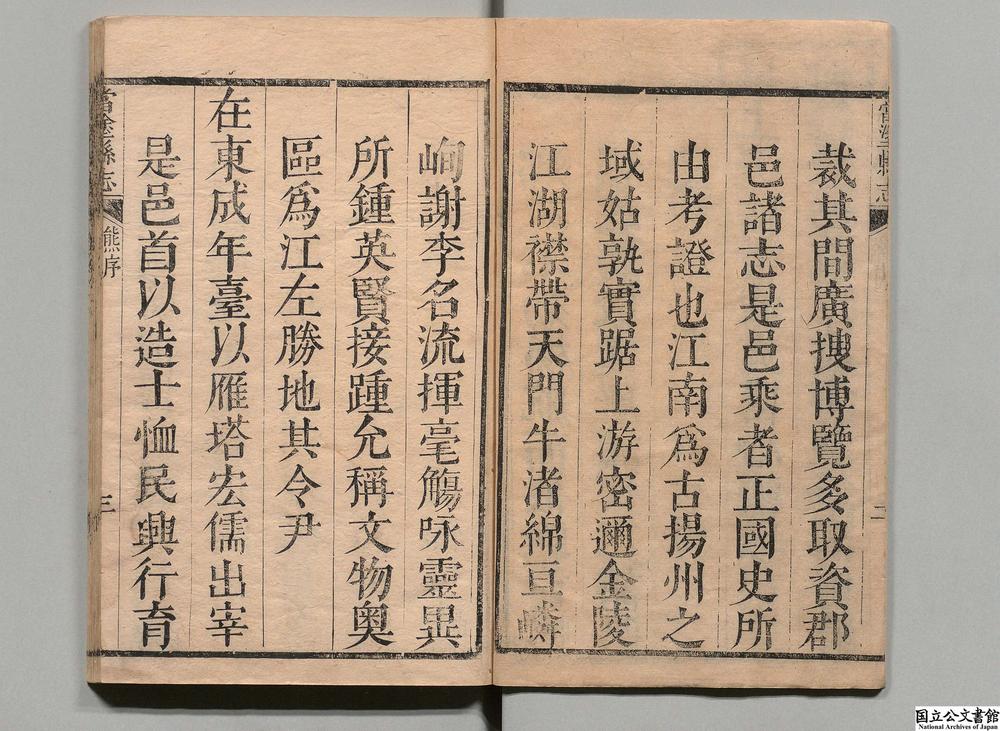 當塗縣志
二
裁其間廣搜博覽多取資郡
邑諸志是邑乘者正國史所
由考證也江南爲古揚州之
域姑孰實踞上游密邇金陵
江湖襟帶天門牛渚綿亘嶙
峋謝李名流揮毫觴咏靈異
所鍾英賢接踵允稱文物奧
區爲江左勝地其令尹
在東成年臺以雁塔宏儒出宰
是邑首以造士恤民興行育
當塗縣志
熊序
三
国立公文書館
National Archives of Japan